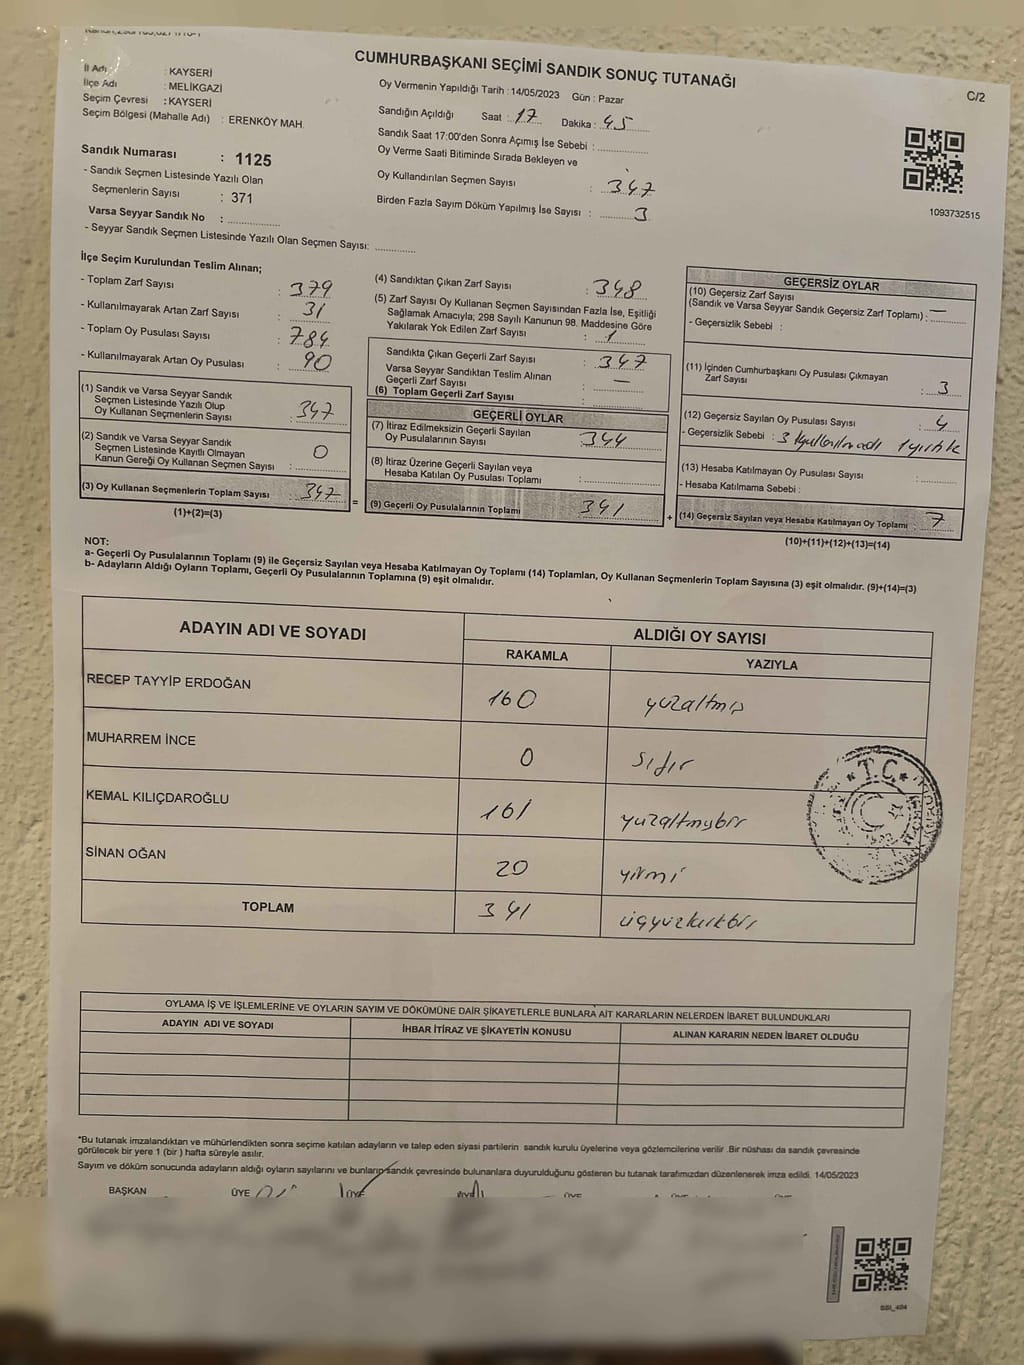 CUMHURBAŞKANI SEÇİMİ SANDIK SONUÇ TUTANAĞI
C/2
İl Adı : KAYSERİ
İlçe Adı : MELİKGAZİ
Seçim Çevresi : KAYSERİ
Seçim Bölgesi (Mahalle Adı) : ERENKÖY MAH.
Sandık Numarası : 1125
- Sandık Seçmen Listesinde Yazılı Olan
Seçmenlerin Sayısı : 371
Varsa Seyyar Sandık No :
- Seyyar Sandık Seçmen Listesinde Yazılı Olan Seçmen Sayısı:
Oy Vermenin Yapıldığı Tarih : 14/05/2023 Gün : Pazar
Sandığın Açıldığı Saat : 17 Dakika : 45
Sandık Saat 17:00'den Sonra Açımış İse Sebebi :
Oy Verme Saati Bitiminde Sırada Bekleyen ve
Oy Kullandırılan Seçmen Sayısı : 347
Birden Fazla Sayım Döküm Yapılmış İse Sayısı : 3
1093732515
İlçe Seçim Kurulundan Teslim Alınan;
- Toplam Zarf Sayısı : 379
- Kullanılmayarak Artan Zarf Sayısı : 31
- Toplam Oy Pusulası Sayısı : 784
- Kullanılmayarak Artan Oy Pusulası : 90
(1) Sandık ve Varsa Seyyar Sandık
Seçmen Listesinde Yazılı Olup
Oy Kullanan Seçmenlerin Sayısı : 347
(2) Sandık ve Varsa Seyyar Sandık
Seçmen Listesinde Kayıtlı Olmayan
Kanun Gereği Oy Kullanan Seçmen Sayısı : 0
(3) Oy Kullanan Seçmenlerin Toplam Sayısı : 347
(1)+(2)=(3)
(4) Sandıktan Çıkan Zarf Sayısı : 348
(5) Zarf Sayısı Oy Kullanan Seçmen Sayısından Fazla İse, Eşitliği
Sağlamak Amacıyla; 298 Sayılı Kanunun 98. Maddesine Göre
Yakılarak Yok Edilen Zarf Sayısı : 1
Sandıkta Çıkan Geçerli Zarf Sayısı : 347
Varsa Seyyar Sandıktan Teslim Alınan
Geçerli Zarf Sayısı : —
(6) Toplam Geçerli Zarf Sayısı :
GEÇERLİ OYLAR
(7) İtiraz Edilmeksizin Geçerli Sayılan
Oy Pusulalarının Sayısı : 344
(8) İtiraz Üzerine Geçerli Sayılan veya
Hesaba Katılan Oy Pusulası Toplamı :
= (9) Geçerli Oy Pusulalarının Toplamı : 341
GEÇERSİZ OYLAR
(10) Geçersiz Zarf Sayısı
(Sandık ve Varsa Seyyar Sandık Geçersiz Zarf Toplamı) : —
- Geçersizlik Sebebi :
(11) İçinden Cumhurbaşkanı Oy Pusulası Çıkmayan
Zarf Sayısı : 3
(12) Geçersiz Sayılan Oy Pusulası Sayısı : 4
- Geçersizlik Sebebi : 3 kullanılmadı 1 yırtık
(13) Hesaba Katılmayan Oy Pusulası Sayısı :
- Hesaba Katılmama Sebebi :
+ (14) Geçersiz Sayılan veya Hesaba Katılmayan Oy Toplamı : 7
(10)+(11)+(12)+(13)=(14)
NOT:
a- Geçerli Oy Pusulalarının Toplamı (9) ile Geçersiz Sayılan veya Hesaba Katılmayan Oy Toplamı (14) Toplamları, Oy Kullanan Seçmenlerin Toplam Sayısına (3) eşit olmalıdır. (9)+(14)=(3)
b- Adayların Aldığı Oyların Toplamı, Geçerli Oy Pusulalarının Toplamına (9) eşit olmalıdır.
ADAYIN ADI VE SOYADI
ALDIĞI OY SAYISI
RAKAMLA YAZIYLA
RECEP TAYYİP ERDOĞAN 160 yüzaltmış
MUHARREM İNCE 0 sıfır
KEMAL KILIÇDAROĞLU 161 yüzaltmışbir
SİNAN OĞAN 20 yirmi
TOPLAM 341 üçyüzkırkbir
T.C.
OYLAMA İŞ VE İŞLEMLERİNE VE OYLARIN SAYIM VE DÖKÜMÜNE DAİR ŞİKAYETLERLE BUNLARA AİT KARARLARIN NELERDEN İBARET BULUNDUKLARI
ADAYIN ADI VE SOYADI İHBAR İTİRAZ VE ŞİKAYETİN KONUSU ALINAN KARARIN NEDEN İBARET OLDUĞU
*Bu tutanak imzalandıktan ve mühürlendikten sonra seçime katılan adayların ve talep eden siyasi partilerin sandık kurulu üyelerine veya gözlemcilerine verilir. Bir nüshası da sandık çevresinde
görülecek bir yere 1 (bir) hafta süreyle asılır.
Sayım ve döküm sonucunda adayların aldığı oyların sayılarını ve bunların sandık çevresinde bulunanlara duyurulduğunu gösteren bu tutanak tarafımızdan düzenlenerek imza edildi. 14/05/2023
BAŞKAN ÜYE ÜYE ÜYE